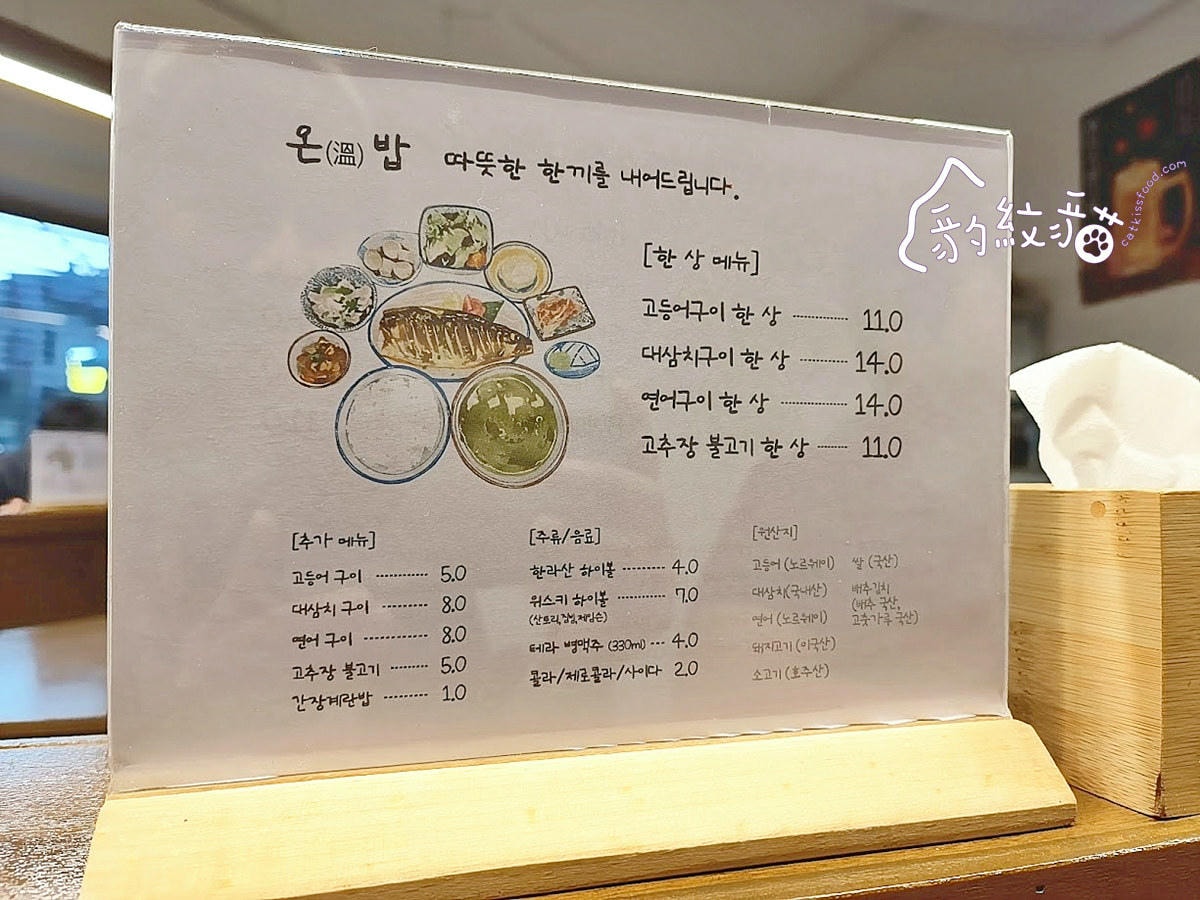 온(溫)밥 따뜻한 한끼를 내어드립니다.
[한 상 메뉴]
고등어구이 한 상 ---------- 11.0
대삼치구이 한 상 -------- 14.0
연어구이 한 상 ------------ 14.0
고추장 불고기 한 상 ------ 11.0
[추가 메뉴]
고등어 구이 ---------- 5.0
대삼치 구이 --------- 8.0
연어 구이 ------------ 8.0
고추장 불고기 ------- 5.0
간장계란밥 --------- 1.0
[주류/음료]
한라산 하이볼 --------- 4.0
위스키 하이볼 ---------- 7.0
(산토리,짐빔,제임슨)
테라 병맥주 (330ml) --- 4.0
콜라/제로콜라/사이다 2.0
[원산지]
고등어 (노르웨이)
대삼치(국내산)
연어 (노르웨이)
돼지고기 (미국산)
소고기 (호주산)
쌀 (국산)
배추김치
(배추 국산,
고춧가루 국산)
豹紋貓
catkissfood.com